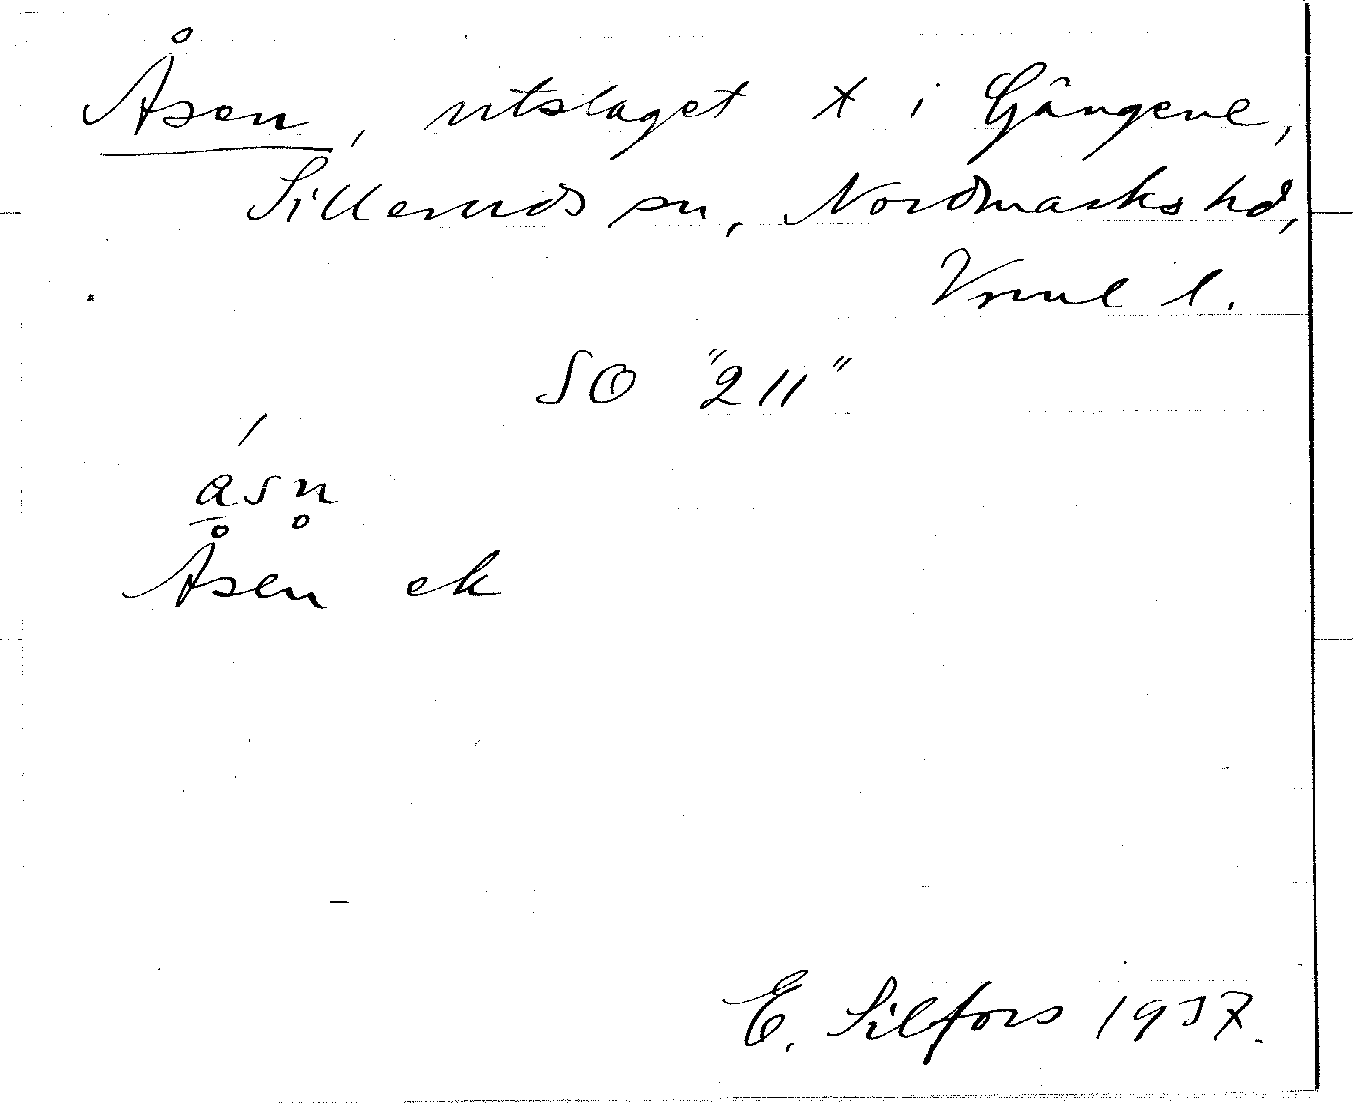 Åsen, utslaget t i Gångene,
Silleruds sn, Nordmarks hd,
Vrml l.
SO "211"
åsn̥
Åsen ek
E. Silfors 1937.